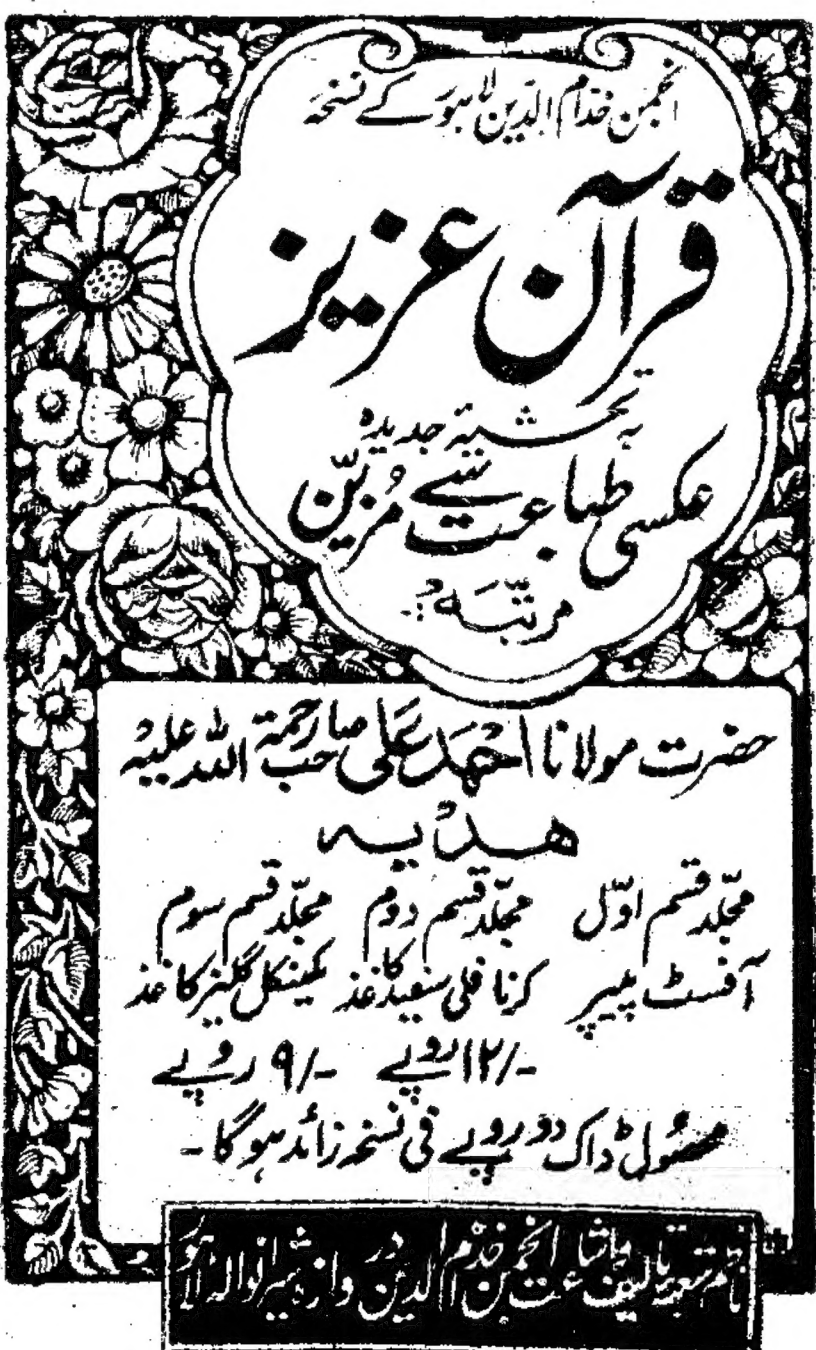 انجمن خدام الدین لاہور کے نسخہ
قرآن عزیز
بہ تحشیۂ جدیدہ
عکسی طباعت سے مزیّن
مرتّبہ
حضرت مولانا احمد علی صاحب رحمۃ اللہ علیہ
ھدیہ
مجلّد قسم اوّل مجلّد قسم دوم مجلّد قسم سوم
آفسٹ پیپر کرنافلی سفید کاغذ کیمیکل گلیز کاغذ
۱۲/- روپے ۹/- روپے
محصول ڈاک دو روپے فی نسخہ زائد ہوگا۔
ناظم شعبہ تالیف و اشاعت انجمن خدام الدین دروازہ شیرانوالہ لاہور